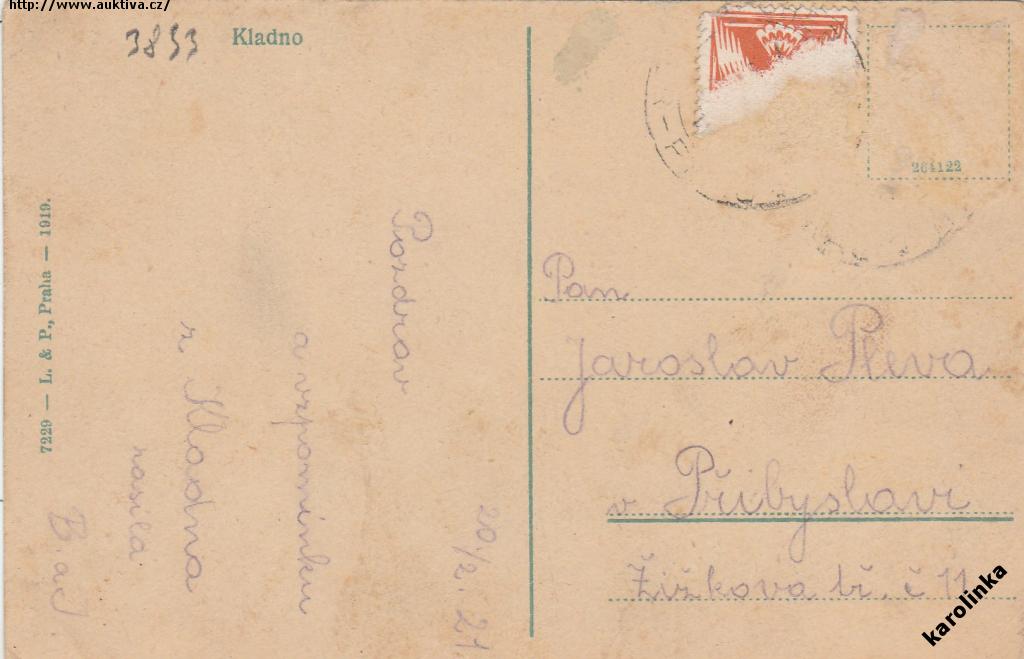 http://www.auktiva.cz/
3853
Kladno
7229 — L. & P., Praha — 1919.
264122
20/2. 21
Pozdrav
a vzpomínku
z Kladna
zasílá
Pan
Jaroslav Pleva
v Přibyslavi
Žižkova tř. č 11
karolinka